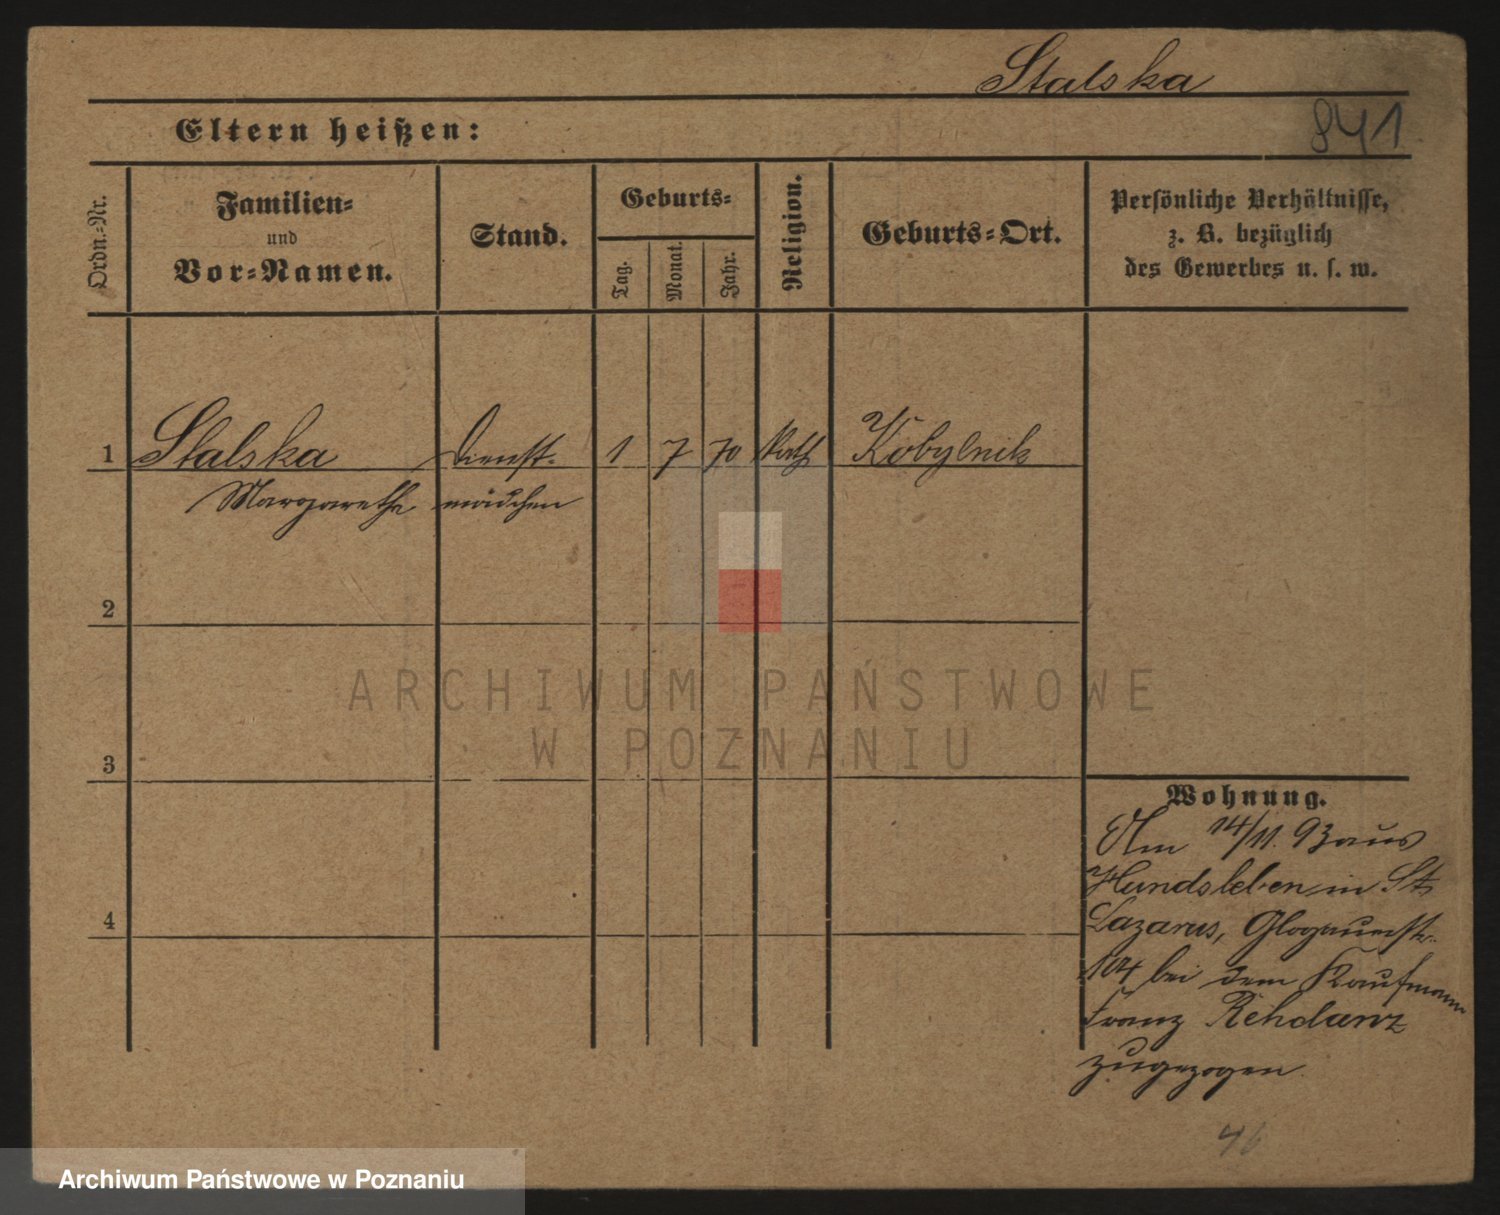 Stalska
841
Eltern heißen:
Ordn.-Nr.
Familien-
und
Vor-Namen.
Stand.
Geburts-
Tag.
Monat.
Jahr.
Religion.
Geburts-Ort.
Persönliche Verhältnisse,
z. B. bezüglich
des Gewerbes u. s. w.
1 Stalska Dienst- 1 7 70 Kath Kobylnik
Margarethe mädchen
2
3
4
Wohnung.
Am 14/11. 93 aus
Hundsleben in St
Lazarus, Glogauerstr.
104 bei dem Kaufmann
Franz Rehdanz
zugezogen.
46
ARCHIWUM PAŃSTWOWE
W POZNANIU
Archiwum Państwowe w Poznaniu